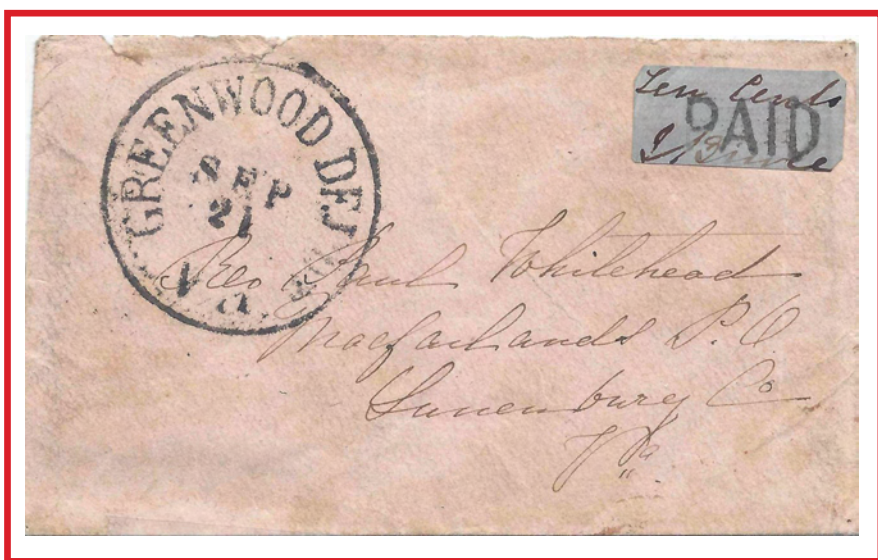 GREENWOOD DEP
SEP
21
Va.
Ten Cents
PAID
Rev Paul Whitehead
Macfarlands P. O
Lunenburg Co
Va